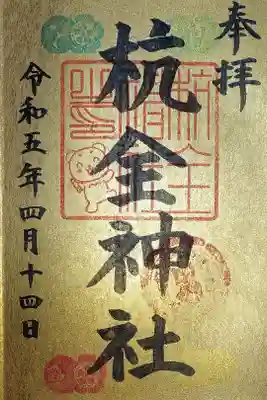 奉拝
杭全神社
令和五年四月十四日